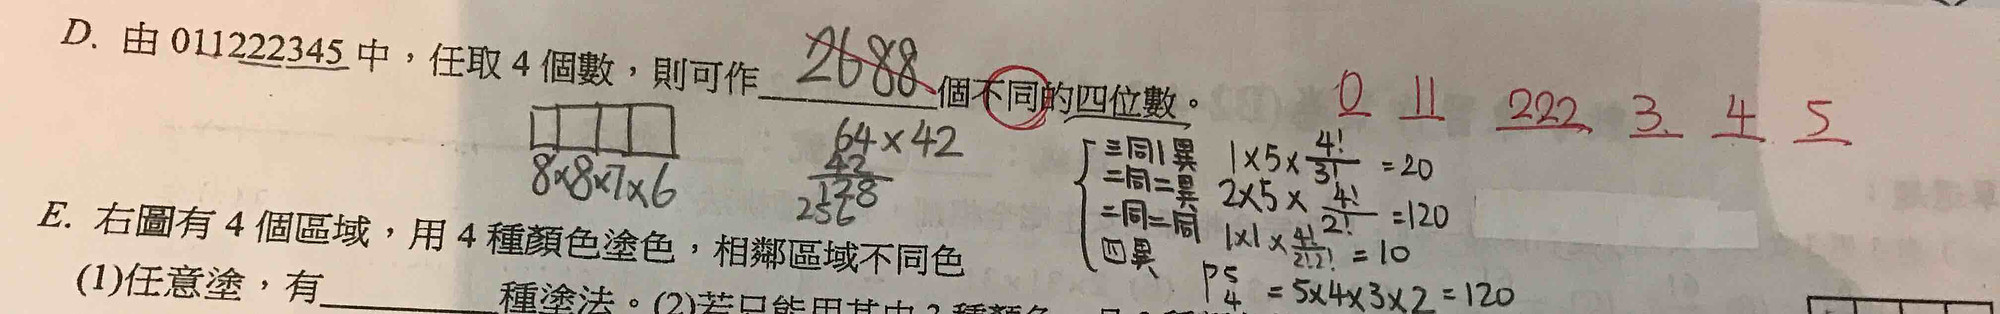 D. 由 011222345 中，任取 4 個數，則可作 2688 個不同的四位數。
0 11 222 3. 4 5
8×8×7×6
64×42
42
128
256
三同1異 1×5×4!/3! =20
二同二異 2×5×4!/2! =120
二同二同 1×1×4!/2!2! =10
四異 P5 4 =5×4×3×2=120
E. 右圖有 4 個區域，用 4 種顏色塗色，相鄰區域不同色
(1)任意塗，有________種塗法。(2)若只能用其中